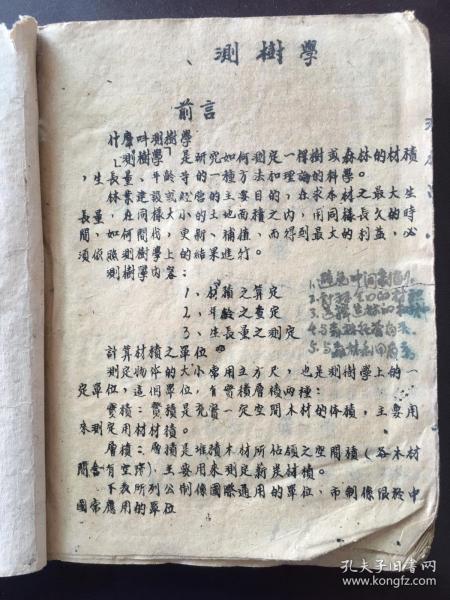 測樹學
前言
什麼叫測樹學
「測樹學」是研究如何測定一棵樹或森林的材積
，生長量、年龄等的一種方法和理論的科學。
林業建設或經營的主要目的，在求木材之最大生
長量，在同樣大小的土地面積之內，用同樣長久的時
間，如何間伐，更新、補值，而得到最大的利益，必
須依照測樹學上的結果進行。
測樹學內容：
1、材積之算定
2、年龄之查定
3、生長量之測定
計算材積之單位
測定物体的大小常用立方尺，也是測樹學上的一
定單位，這個單位，有實積層積兩種：
實積：實積是充實一定空間木材的体積，主要用
來測定用材材積。
層積：層積是堆積木材所佔領之空間積（各木材
間含有空序）主要用來測定薪炭材積。
下表所列公制係國際通用的單位，市制係限於中
國市應用的單位
1.
2.
3.
4.
5.
孔夫子旧书网
www.kongfz.com